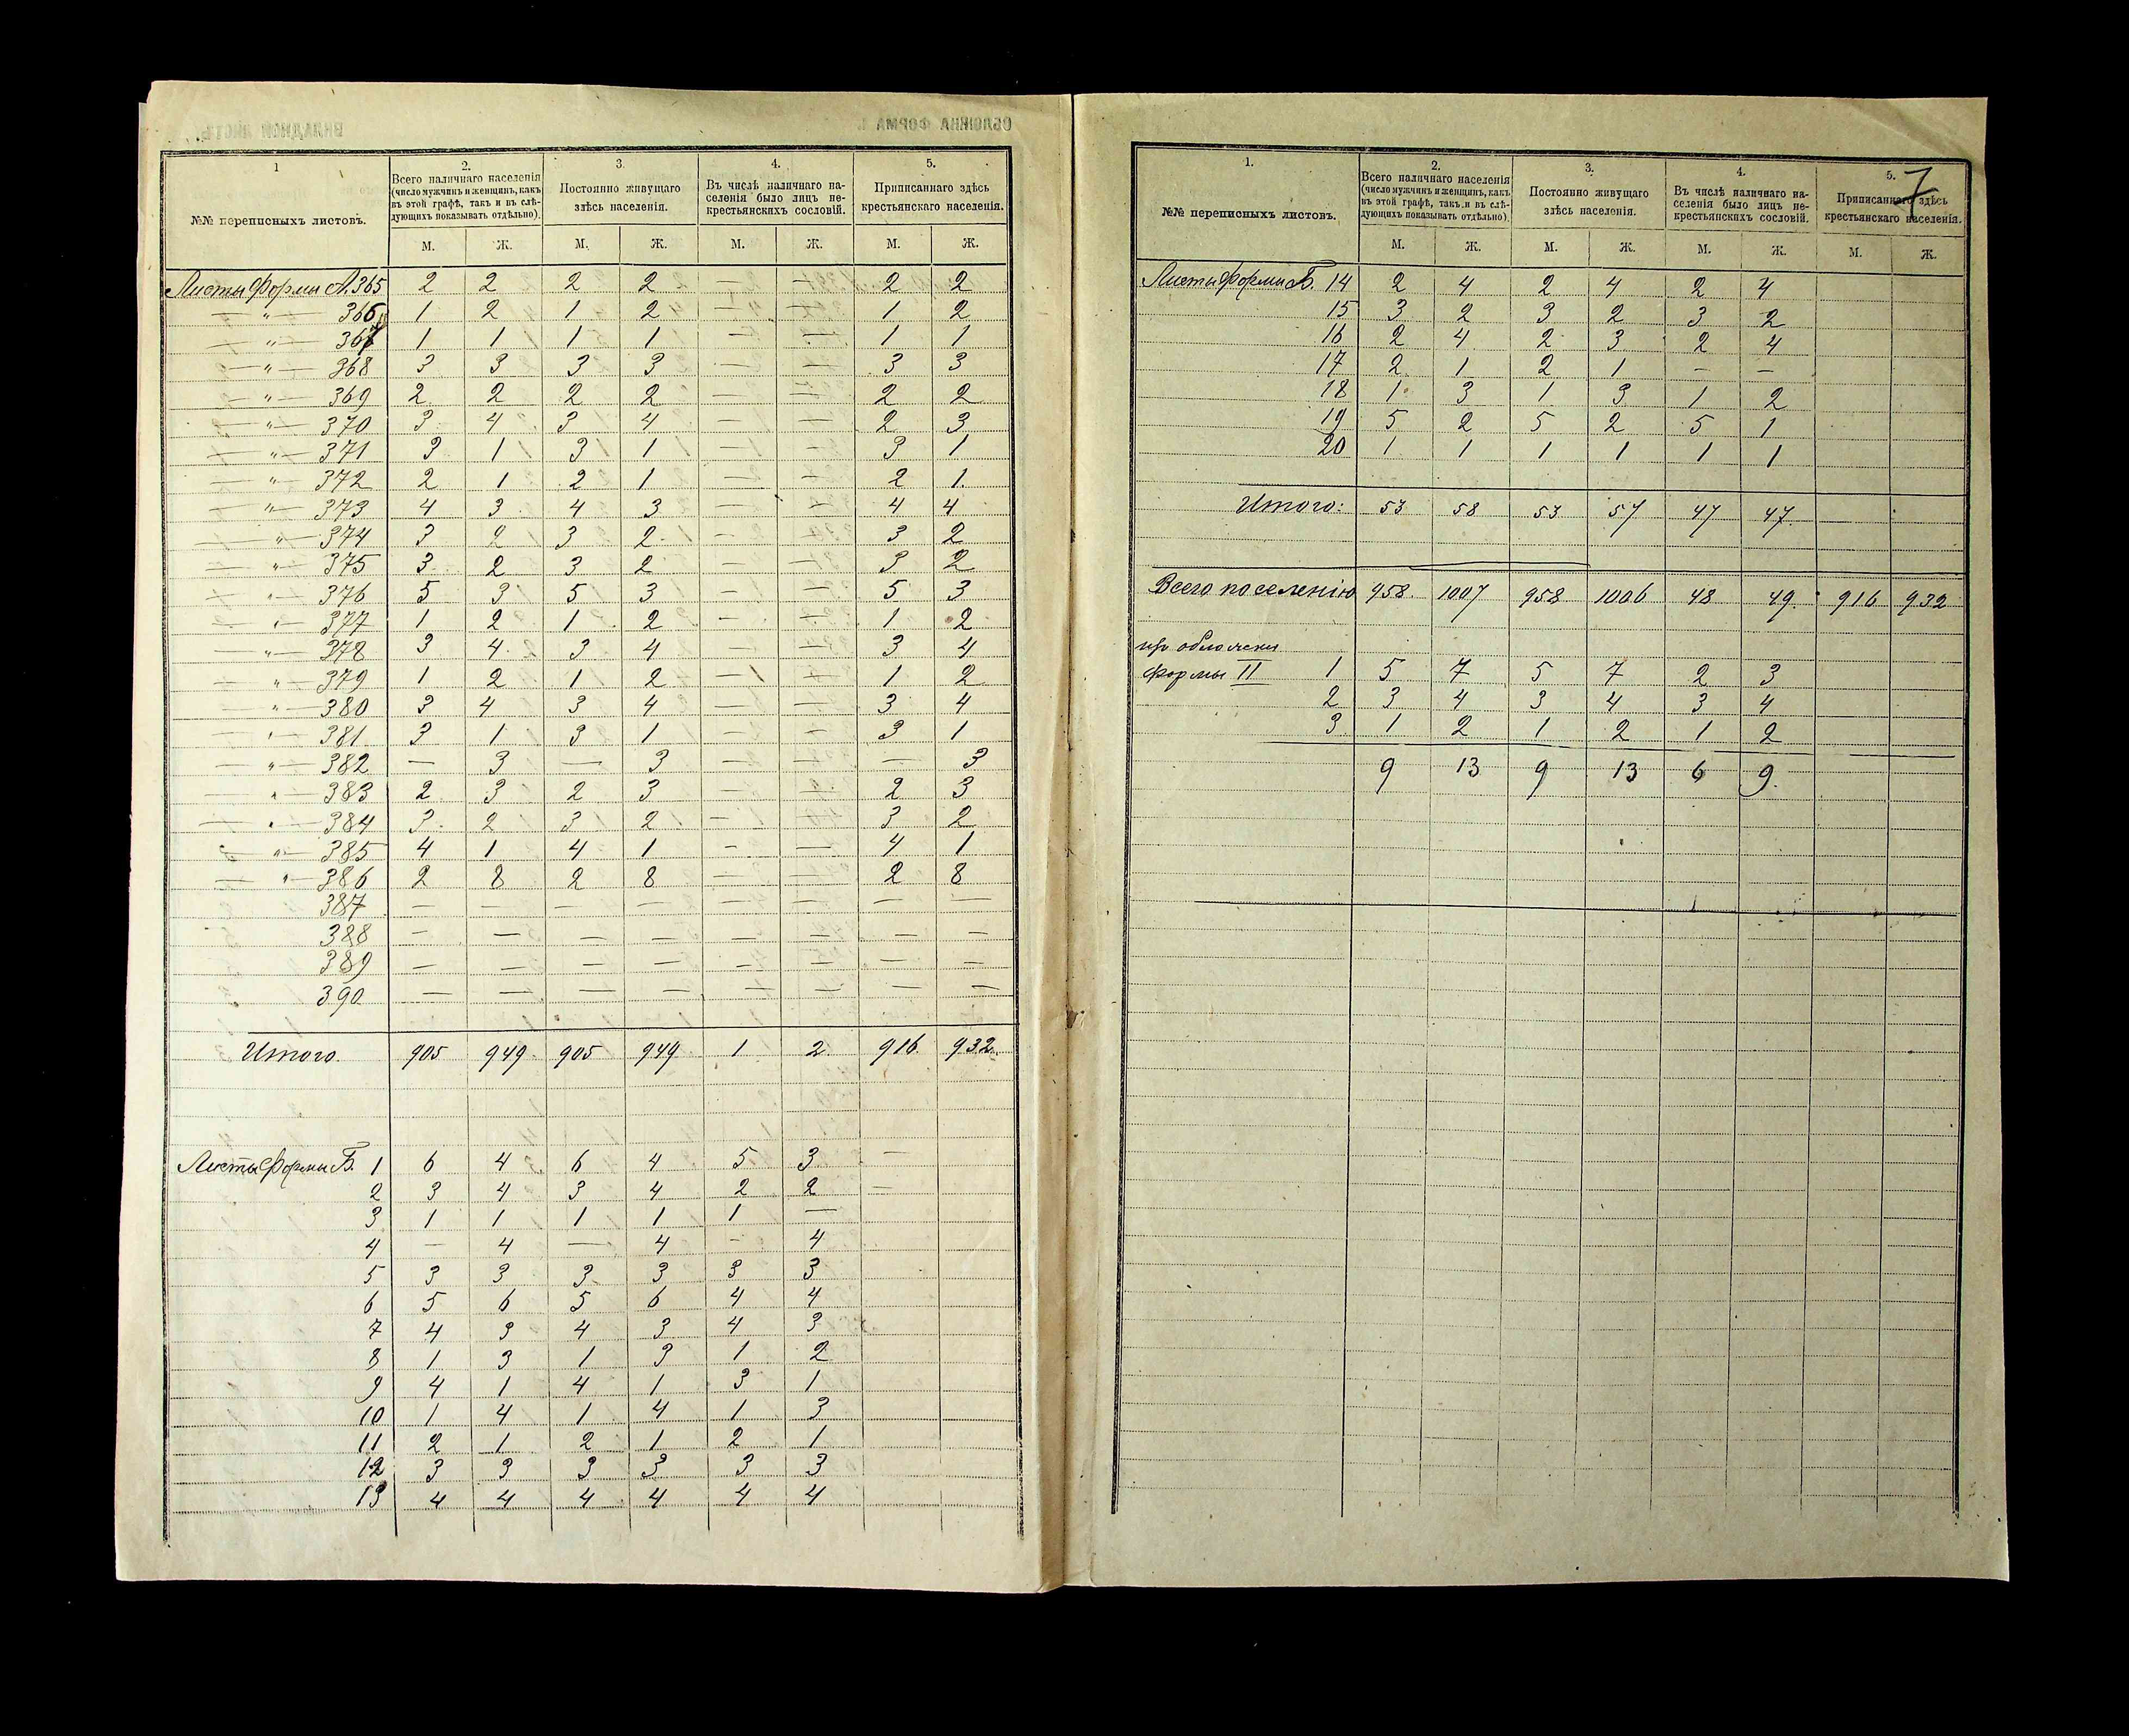 1
2.
3.
4.
5.
№№ переписныхъ листовъ.
Всего наличнаго населенія
(число мужчинъ и женщинъ, какъ
въ этой графѣ, такъ и въ слѣ-
дующихъ показывать отдѣльно).
Постоянно живущаго
здѣсь населенія.
Въ числѣ наличнаго на-
селенія было лицъ не-
крестьянскихъ сословій.
Приписаннаго здѣсь
крестьянскаго населенія.
М. Ж. М. Ж. М. Ж. М. Ж.
Листы формы А. 365 2 2 2 2 — — 2 2
— „ — 366 1 2 1 2 — — 1 2
— „ — 367 1 1 1 1 — — 1 1
— „ — 368 3 3 3 3 — — 3 3
— „ — 369 2 2 2 2 — — 2 2
— „ — 370 3 4 3 4 — — 2 3
— „ — 371 3 1 3 1 — — 3 1
— „ — 372 2 1 2 1 — — 2 1
— „ — 373 4 3 4 3 — — 4 4
— „ — 374 3 2 3 2 — — 3 2
— „ — 375 3 2 3 2 — — 3 2
— „ — 376 5 3 5 3 — — 5 3
— „ — 377 1 2 1 2 — — 1 2
— „ — 378 3 4 3 4 — — 3 4
— „ — 379 1 2 1 2 — — 1 2
— „ — 380 3 4 3 4 — — 3 4
— „ — 381 3 1 3 1 — — 3 1
— „ — 382 — 3 — 3 — — — 3
— „ — 383 2 3 2 3 — — 2 3
— „ — 384 3 2 3 2 — — 3 2
— „ — 385 4 1 4 1 — — 4 1
— „ — 386 2 8 2 8 — — 2 8
387 — — — — — — — —
388 — — — — — — — —
389 — — — — — — — —
390 — — — — — — — —
Итого. 905 949 905 949 1 2 916 932
Листы формы Б. 1 6 4 6 4 5 3 —
2 3 4 3 4 2 2 —
3 1 1 1 1 1 —
4 — 4 — 4 — 4
5 3 3 3 3 3 3
6 5 6 5 6 4 4
7 4 3 4 3 4 3
8 1 3 1 3 1 2
9 4 1 4 1 3 1
10 1 4 1 4 1 3
11 2 1 2 1 2 1
12 3 3 3 3 3 3
13 4 4 4 4 4 4
7
1.
2.
3.
4.
5.
№№ переписныхъ листовъ.
Всего наличнаго населенія
(число мужчинъ и женщинъ, какъ
въ этой графѣ, такъ и въ слѣ-
дующихъ показывать отдѣльно).
Постоянно живущаго
здѣсь населенія.
Въ числѣ наличнаго на-
селенія было лицъ не-
крестьянскихъ сословій.
Приписаннаго здѣсь
крестьянскаго населенія.
М. Ж. М. Ж. М. Ж. М. Ж.
Листы формы Б. 14 2 4 2 4 2 4
15 3 2 3 2 3 2
16 2 4 2 3 2 4
17 2 1 2 1 — —
18 1 3 1 3 1 2
19 5 2 5 2 5 1
20 1 1 1 1 1 1
Итого: 53 58 53 57 47 47
Всего по селенію 958 1007 958 1006 48 49 916 932
обложки
формы II 1 5 7 5 7 2 3
2 3 4 3 4 3 4
3 1 2 1 2 1 2
9 13 9 13 6 9.